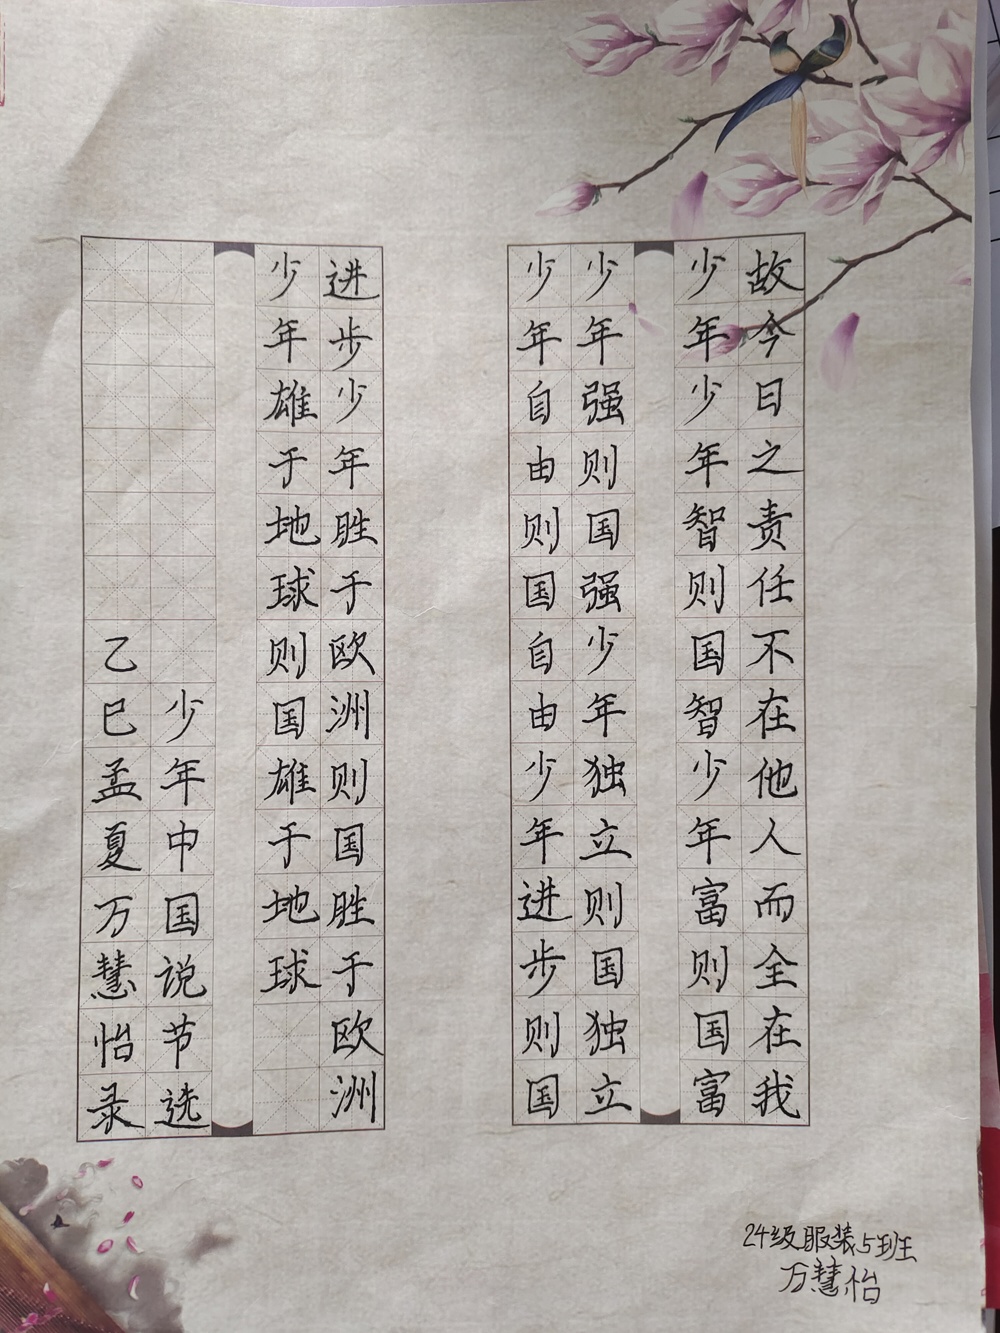 故今日之责任不在他人而全在我
少年少年智则国智少年富则国富
少年强则国强少年独立则国独立
少年自由则国自由少年进步则国
进步少年胜于欧洲则国胜于欧洲
少年雄于地球则国雄于地球
少年中国说节选
乙巳孟夏万慧怡录
24级服装5班
万慧怡